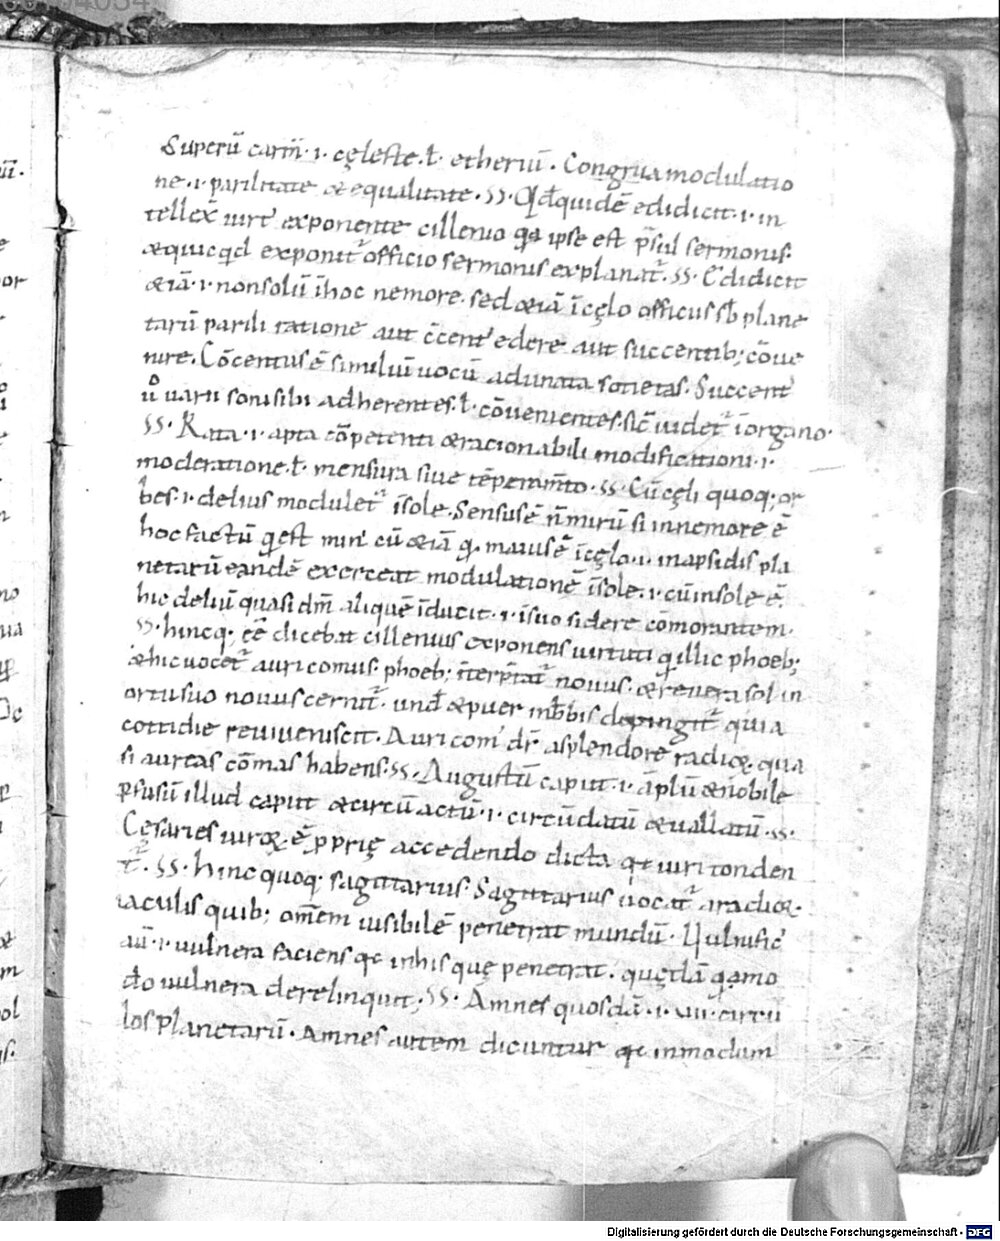 Superū carm̄·i·cęleste·ł·etheriū·Congrua modulatio
ne·i·parilitate & equalitate·ss·Qd̄ quidē edidicit·i·in
tellex̄ uirt' exponente cillenio qa ipse est p̄sul sermonis·
& quicqd exponit' officio sermonis explanat'·ss·Edidicit
&iā·i·non solū ī hoc nemore·sed &iā ī cęlo officiis sb plane
tarū parili ratione aut c̄cent' edere aut succentib; cōue
nire·Cōcentus ē similiū uocū adunata societas·Succent'
u̇ uarii soni sibi adherentes·ł·cōuenientes·sic̄ uidet' ī organo·
ss·Rata·i·apta cōpetenti & racionabili modificationi·i·
moderatione·ł·mensura siue tēperam̄to·ss·Cū cęli quoq; or
bes·i·delius modulet' ī sole·Sensus ē n̄ mirū si in nemore ē
hoc factū qd est min' cū &iā qd maius ē ī cęlo·i·in apsidis pla
netarū eandē exerceat modulationē ī sole·i·cū in sole ē·
hic deliū quasi dm̄ aliquē īducit·i·ī suo sidere cōmorantem·
ss·hincq; ee dicebat cillenius exponens uirtuti qd illic phoeb;
& hic uocet' auricomus·phoeb; īterp̄tat' nouus·& reuera sol in
ortu suo nouus cernit'·und & puer inbbis depingit' quia
cottidie reiuueniscit·Auricom' dr̄ a splendore radioꝝ·qua
si aureas cōmas habens·ss·Augustū caput·i·āplū & nobile
ꝑfusū illud caput & circū actū·i·circūdatū & uallatū·ss·
Cęsaries uiroꝝ ē ꝓprię accedendo dicta qd uiri tonden
t'·ss·hinc quoq; sagittarius·Sagittarius uocat' a radioꝝ
iaculis quib; om̄em uisibilē penetrat mundū·Uulnific'
aū·i·uulnera faciens qd in his quę penetrat·quędā qdamo
do uulnera derelinquit·ss·Amnes quosdā·i·uii·circu
los planetarū·Amnes autem dicuntur qd in modum
Digitalisierung gefördert durch die Deutsche Forschungsgemeinschaft - DFG